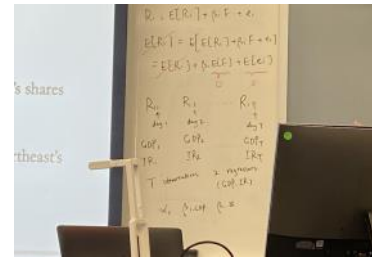 's shares
rtheast's
Ri = E[Ri] + βi F + ei
E[Ri] = E[E[Ri] + βi F + ei]
= E[Ri] + βi E[F] + E[ei]
0 0
Ri1 Ri2 RiT
↑ ↑ ↑
day 1 day 2 day T
GDP1 GDP2 GDPT
IR1 IR2 IRT
T observations 2 regressors
(GDP, IR)
βi,GDP